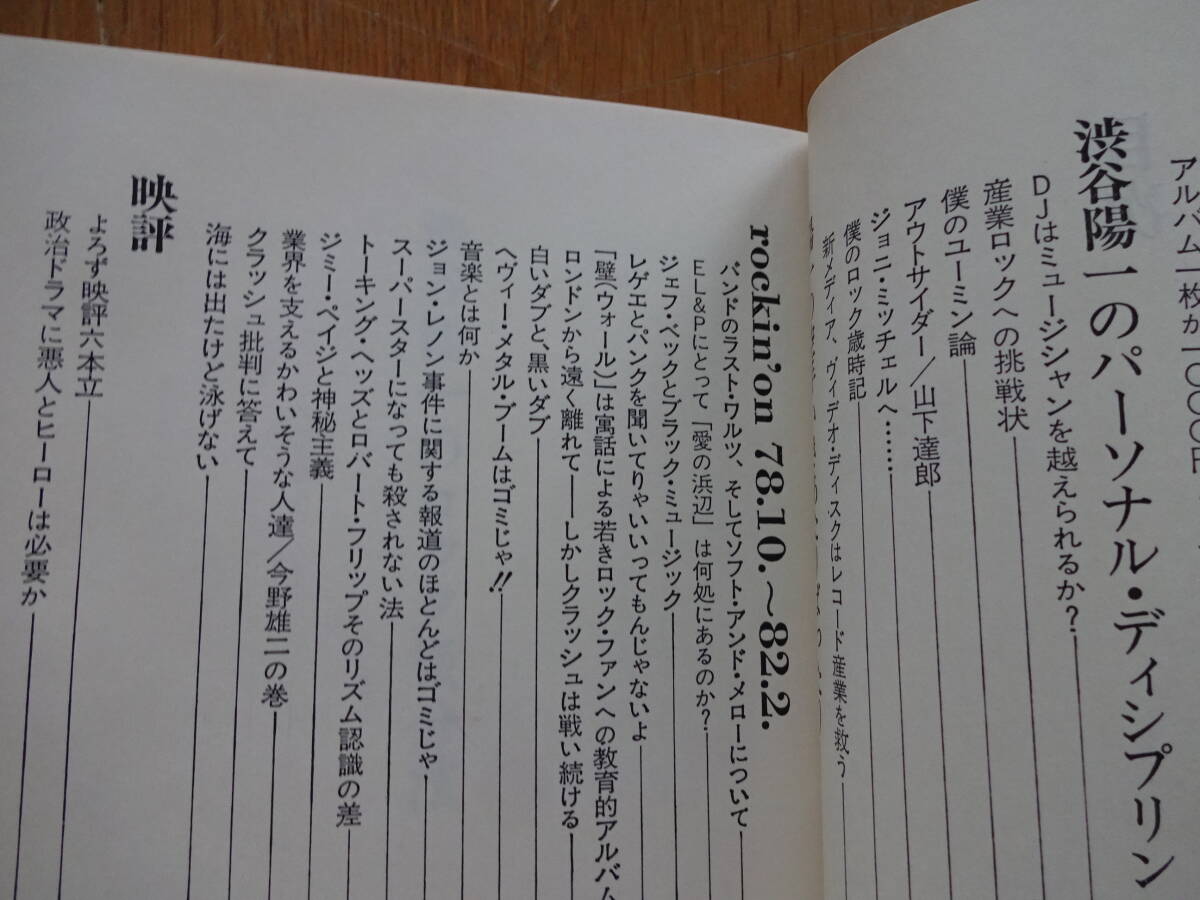 アルバム一枚が一〇〇〇円
渋谷陽一のパーソナル・ディシプリン
DJはミュージシャンを越えられるか?
産業ロックへの挑戦状
僕のユーミン論
アウトサイダー/山下達郎
ジョニ・ミッチェルへ……
僕のロック歳時記
新メディア、ヴィデオ・ディスクはレコード産業を救う
rockin'on 78.10.〜82.2.
バンドのラスト・ワルツ、そしてソフト・アンド・メローについて
EL&Pにとって「愛の浜辺」は何処にあるのか?
ジェフ・ベックとブラック・ミュージック
レゲエとパンクを聞いてりゃいいってもんじゃないよ
「壁(ウォール)」は寓話による若きロック・ファンへの教育的アルバム
ロンドンから遠く離れて——しかしクラッシュは戦い続ける
白いダブと、黒いダブ
ヘヴィー・メタル・ブームはゴミじゃ!!
音楽とは何か
ジョン・レノン事件に関する報道のほとんどはゴミじゃ
スーパースターになっても殺されない法
トーキング・ヘッズとロバート・フリップそのリズム認識の差
ジミー・ペイジと神秘主義
業界を支えるかわいそうな人達/今野雄二の巻
クラッシュ批判に答えて
海には出たけど泳げない
映評
よろず映評六本立
政治ドラマに悪人とヒーローは必要か